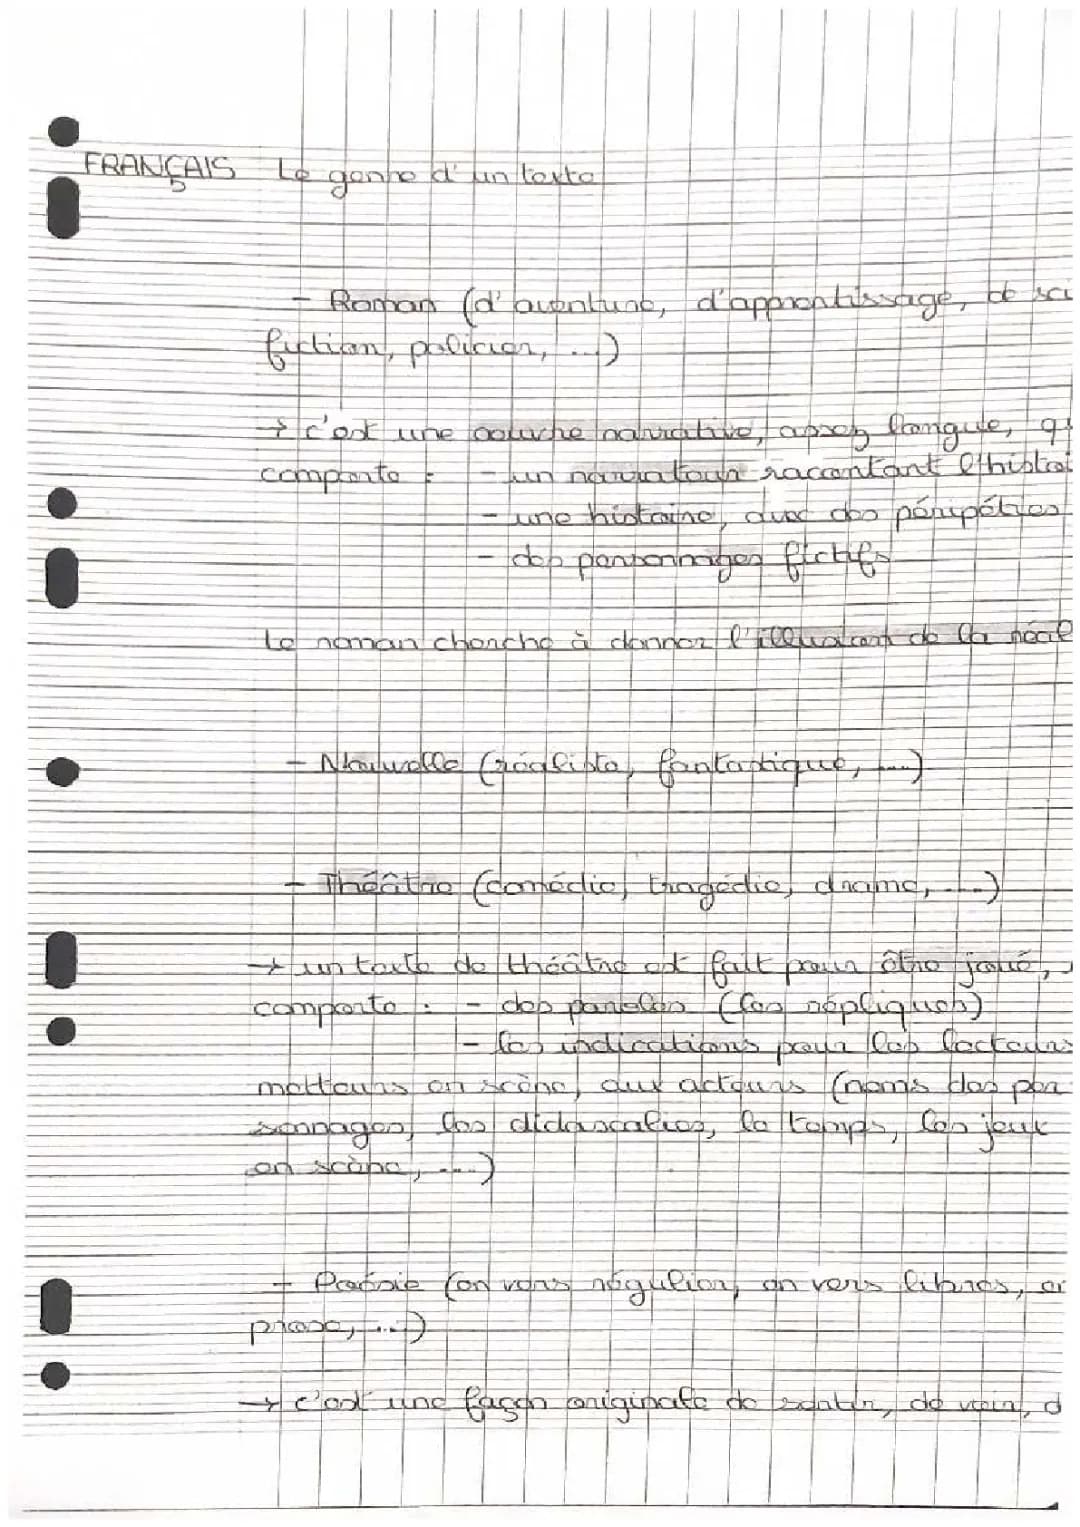 FRANÇAIS Le genre d'un texte
- Roman (d'aventure, d'apprentissage, de sci
fiction, policier, ...)
→ c'est une œuvre narrative, assez longue, q
comporte : - un narrateur racontant l'histoi
- une histoire, avec des péripéties
- des personnages fictifs
Le roman cherche à donner l'illusion de la réal
- Nouvelle (réaliste, fantastique, ...)
- Théâtre (comédie, tragédie, drame, ...)
→ un texte de théâtre est fait pour être joué,
comporte : - des paroles (les répliques)
- les indications pour les lecteurs
metteurs en scène, aux acteurs (noms des per
sonnages, les didascalies, le temps, les jeux
en scène, ...)
- Poésie (en vers régulier, en vers libres, en
prose, ...)
→ c'est une façon originale de sentir, de voir, d